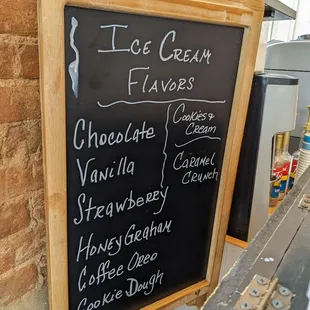 Ice Cream
Flavors
Chocolate
Vanilla
Strawberry
Honey Graham
Coffee Oreo
Cookie Dough
Cookies &
Cream
Caramel
Crunch